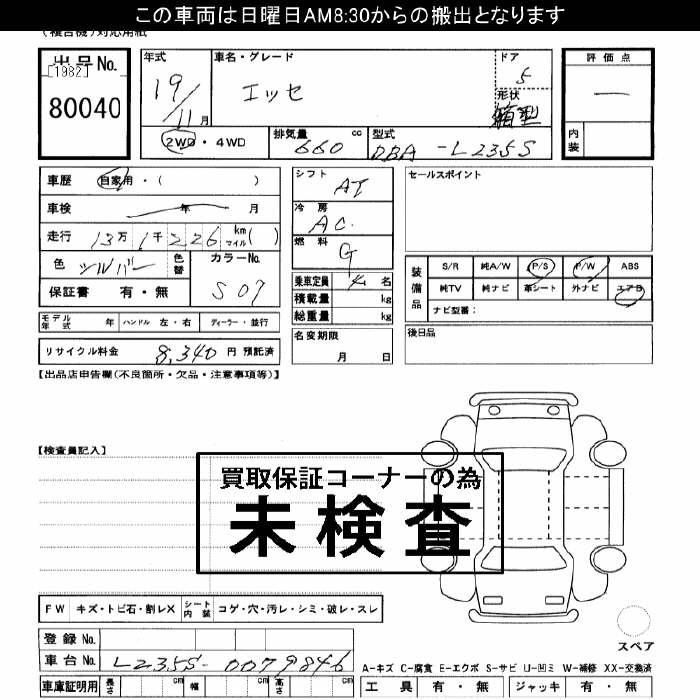 この車両は日曜日AM8:30からの搬出となります
(複合機)対応用紙
出品No.
[1982]
80040
年式 19/11月
車名・グレード エッセ
ドア 5
形状 箱型
2WD・4WD
排気量 660 cc
型式 DBA-L235S
評価点 —
内装
車歴 自家用・( )
車検 年 月
走行 13万1千226 km マイル( )
色 シルバー 色替
カラーNo. S07
保証書 有・無
シフト AT
冷房 AC.
燃料 G
乗車定員 4名
積載量 kg
総重量 kg
名変期限 月 日
セールスポイント
装備品
S/R 純A/W P/S P/W ABS
純TV 純ナビ 革シート 外ナビ エアB
ナビ型番:
後日品
モデル年式 年 ハンドル 左・右 ディーラー・並行
リサイクル料金 8,340 円 預託済
【出品店申告欄(不良箇所・欠品・注意事項等)】
【検査員記入】
買取保証コーナーの為
未検査
FW キズ・トビ石・割レX シート内装 コゲ・穴・汚レ・シミ・破レ・スレ
登録No.
車台No. L235S-0079846
車庫証明用 長さ cm 幅 cm 高さ cm
スペア
A-キズ C-腐食 E-エクボ S-サビ U-凹ミ W-補修 XX-交換済
工具 有・無 ジャッキ 有・無